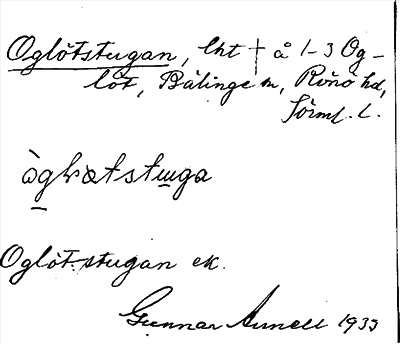 Oglötstugan, lht † å 1-3 Og-
löt, Bälinge sn, Rönö hd,
Sörml. l.
Oglötstugan ek.
Gunnar Arnell 1933